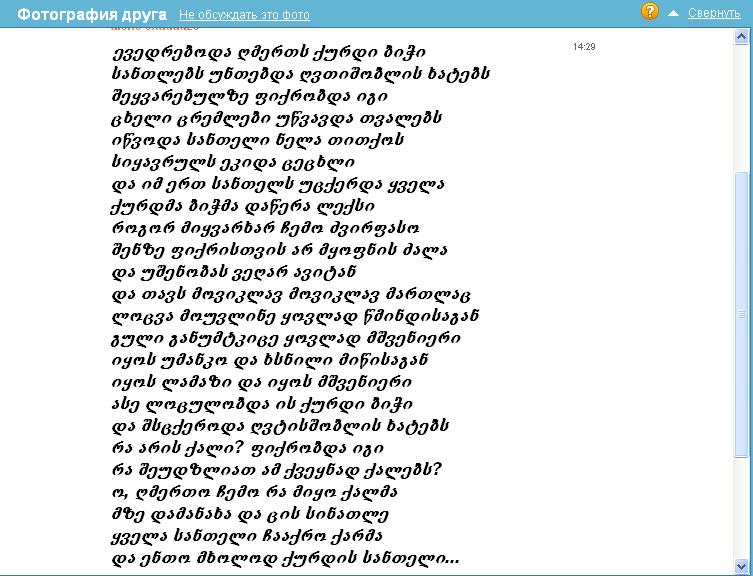 Фотография друга Не обсуждать это фото Свернуть
ევედრებოდა ღმერთს ქურდი ბიჭი 14:29
სანთლებს უნთებდა ღვთიშობლის ხატებს
შეყვარებულზე ფიქრობდა იგი
ცხელი ცრემლები უწვავდა თვალებს
იწვოდა სანთელი ნელა თითქოს
სიყავრულს ეკიდა ცეცხლი
და იმ ერთ სანთელს უცქერდა ყველა
ქურდმა ბიჭმა დაწერა ლექსი
როგორ მიყვარხარ ჩემო ძვირფასო
შენზე ფიქრისთვის არ მყოფნის ძალა
და უშენობას ვეღარ ავიტან
და თავს მოვიკლავ მოვიკლავ მართლაც
ლოცვა მოუვლინე ყოვლად წმინდისაგან
გული განუმტკიცე ყოვლად მშვენიერი
იყოს უმანკო და ხსნილი მიწისაგან
იყოს ლამაზი და იყოს მშვენიერი
ასე ლოცულობდა ის ქურდი ბიჭი
და შსცქეროდა ღვტისშობლის ხატებს
რა არის ქალი? ფიქრობდა იგი
რა შეუდზლიათ ამ ქვეყნად ქალებს?
ო, ღმერთო ჩემო რა მიყო ქალმა
მზე დამანახა და ცის სინათლე
ყველა სანთელი ჩააქრო ქარმა
და ენთო მხოლოდ ქურდის სანთელი...